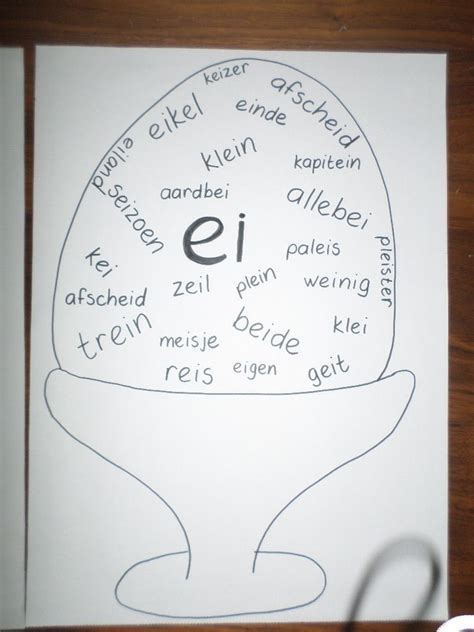 keizer
afscheid
eikel
einde
eiland
klein
kapitein
seizoen
aardbei
allebei
ei
paleis
pleister
kei
zeil
plein
weinig
afscheid
trein
meisje
beide
klei
reis
eigen
geit